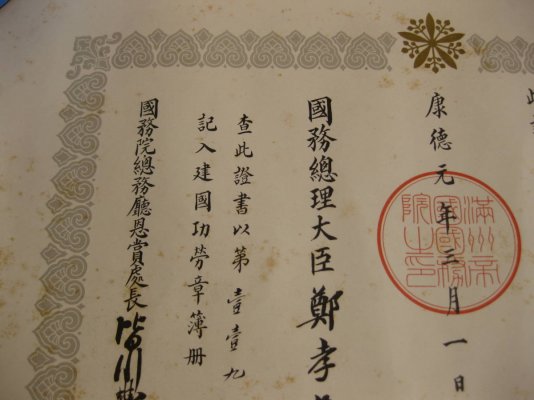 康德元年三月一日
滿州帝國國務院之印
國務總理大臣 鄭孝
查此證書以第壹壹九
記入建國功勞章簿冊
國務院總務廳恩賞處長 皆川